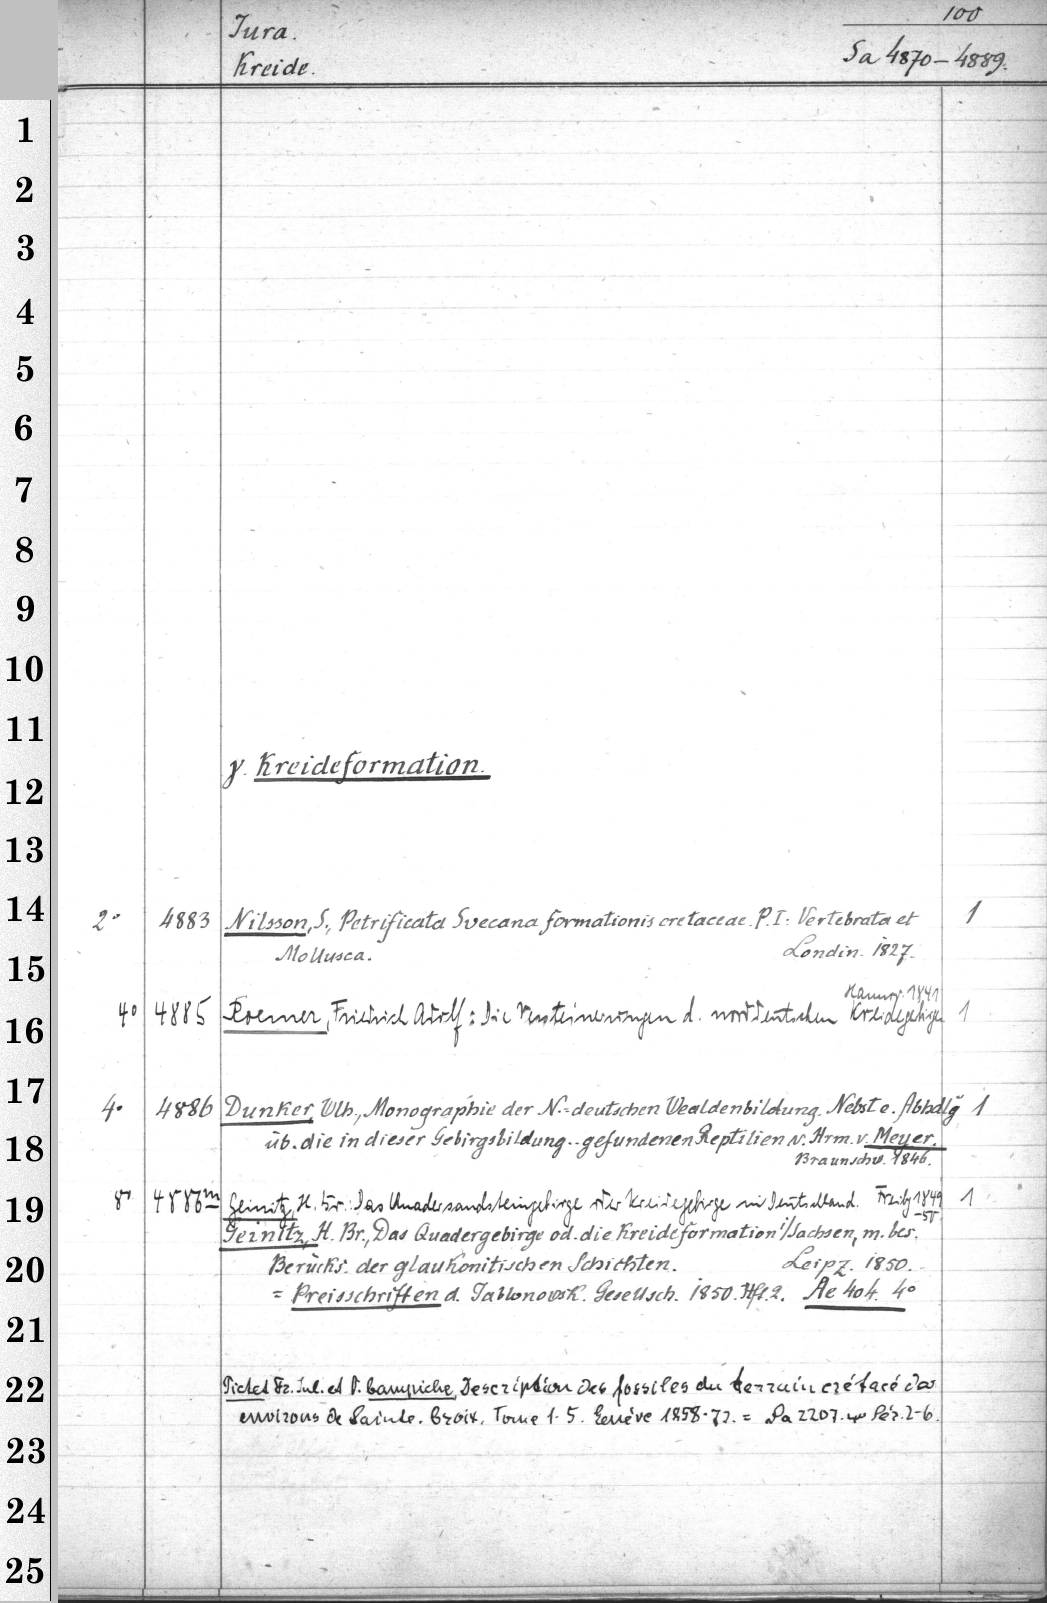 Jura.
100
Kreide.
Sa 4870–4889.
1
2
3
4
5
6
7
8
9
10
11
γ. Kreideformation.
12
13
14
2° 4883 Nilsson, S., Petrificata Svecana formationis cretaceae. P. I: Vertebrata et 1
15
Mollusca. Londin. 1827.
Hannov. 1841
16
4° 4885 Roemer, Friedrich Adolf: Die Versteinerungen d. norddeutschen Kreidegebirges 1
17
4° 4886 Dunker, Wlh., Monographie der N.-deutschen Wealdenbildung. Nebst e. Abhdlg 1
18
üb. die in dieser Gebirgsbildung.. gefundenen Reptilien v. Hrm. v. Meyer.
Braunschw. 1846.
19
8° 4886m Geinitz, H. Br.: Das Quadersandsteingebirge oder Kreidegebirge in Deutschland. Freibg 1849 1
–50
Geinitz, H. Br., Das Quadergebirge od. die Kreideformation i/Sachsen, m. bes.
20
Berücks. der glaukonitischen Schichten. Leipz. 1850.
= Preisschriften d. Jablonowsk. Gesellsch. 1850. Hft. 2. Ae 404. 4°
21
22
Pictet Fr. Jul. et P. Campiche, Description des fossiles du terrain crétacé des
environs de Sainte-Croix. Tome 1-5. Genève 1858-72. = Sa 2207. Sér. 2-6.
23
24
25